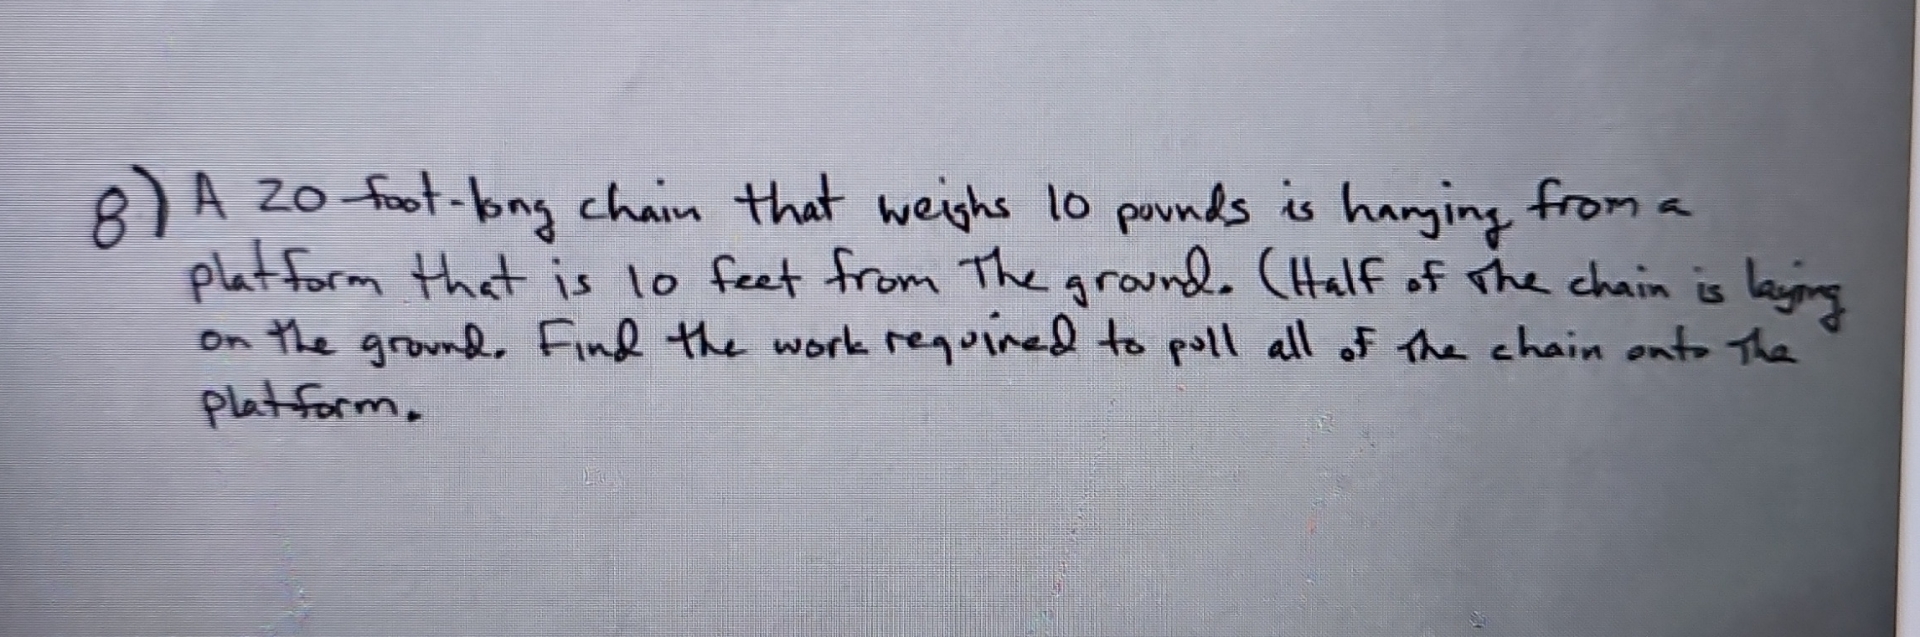 8) A 20-foot-long chain that weighs 10 pounds is hanging from a
platform that is 10 feet from The ground. (Half of the chain is laying
on the ground. Find the work required to pull all of the chain onto The
platform.